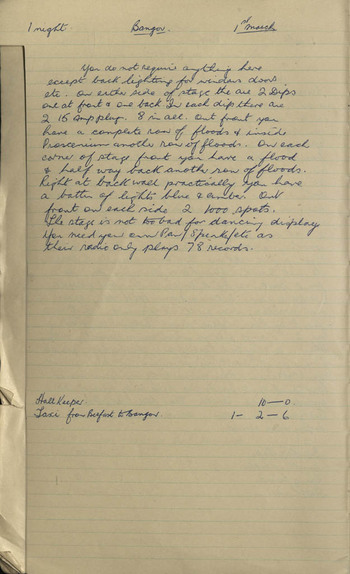 1 night. Bangor. 1st March
You do not require anything here
except back lighting for windows doors
etc. On either side of stage there are 2 Dips
one at front & one back In each dip there are
2 15 Amp plugs. 8 in all. Out front you
have a complete row of floods & inside
Proscenium another row of floods. On each
corner of stage front you have a flood
& half way back another row of floods.
Right at back wall practically you have
a batten of lights blue & amber. Out
front on each side 2 1000 spots.
The stage is not too bad for dancing display
You need your own Pan/Speakers etc as
their radio only plays 78 records.
Hall Keeper. 10 — 0
Taxi from to Bangor 1 - 2 - 6